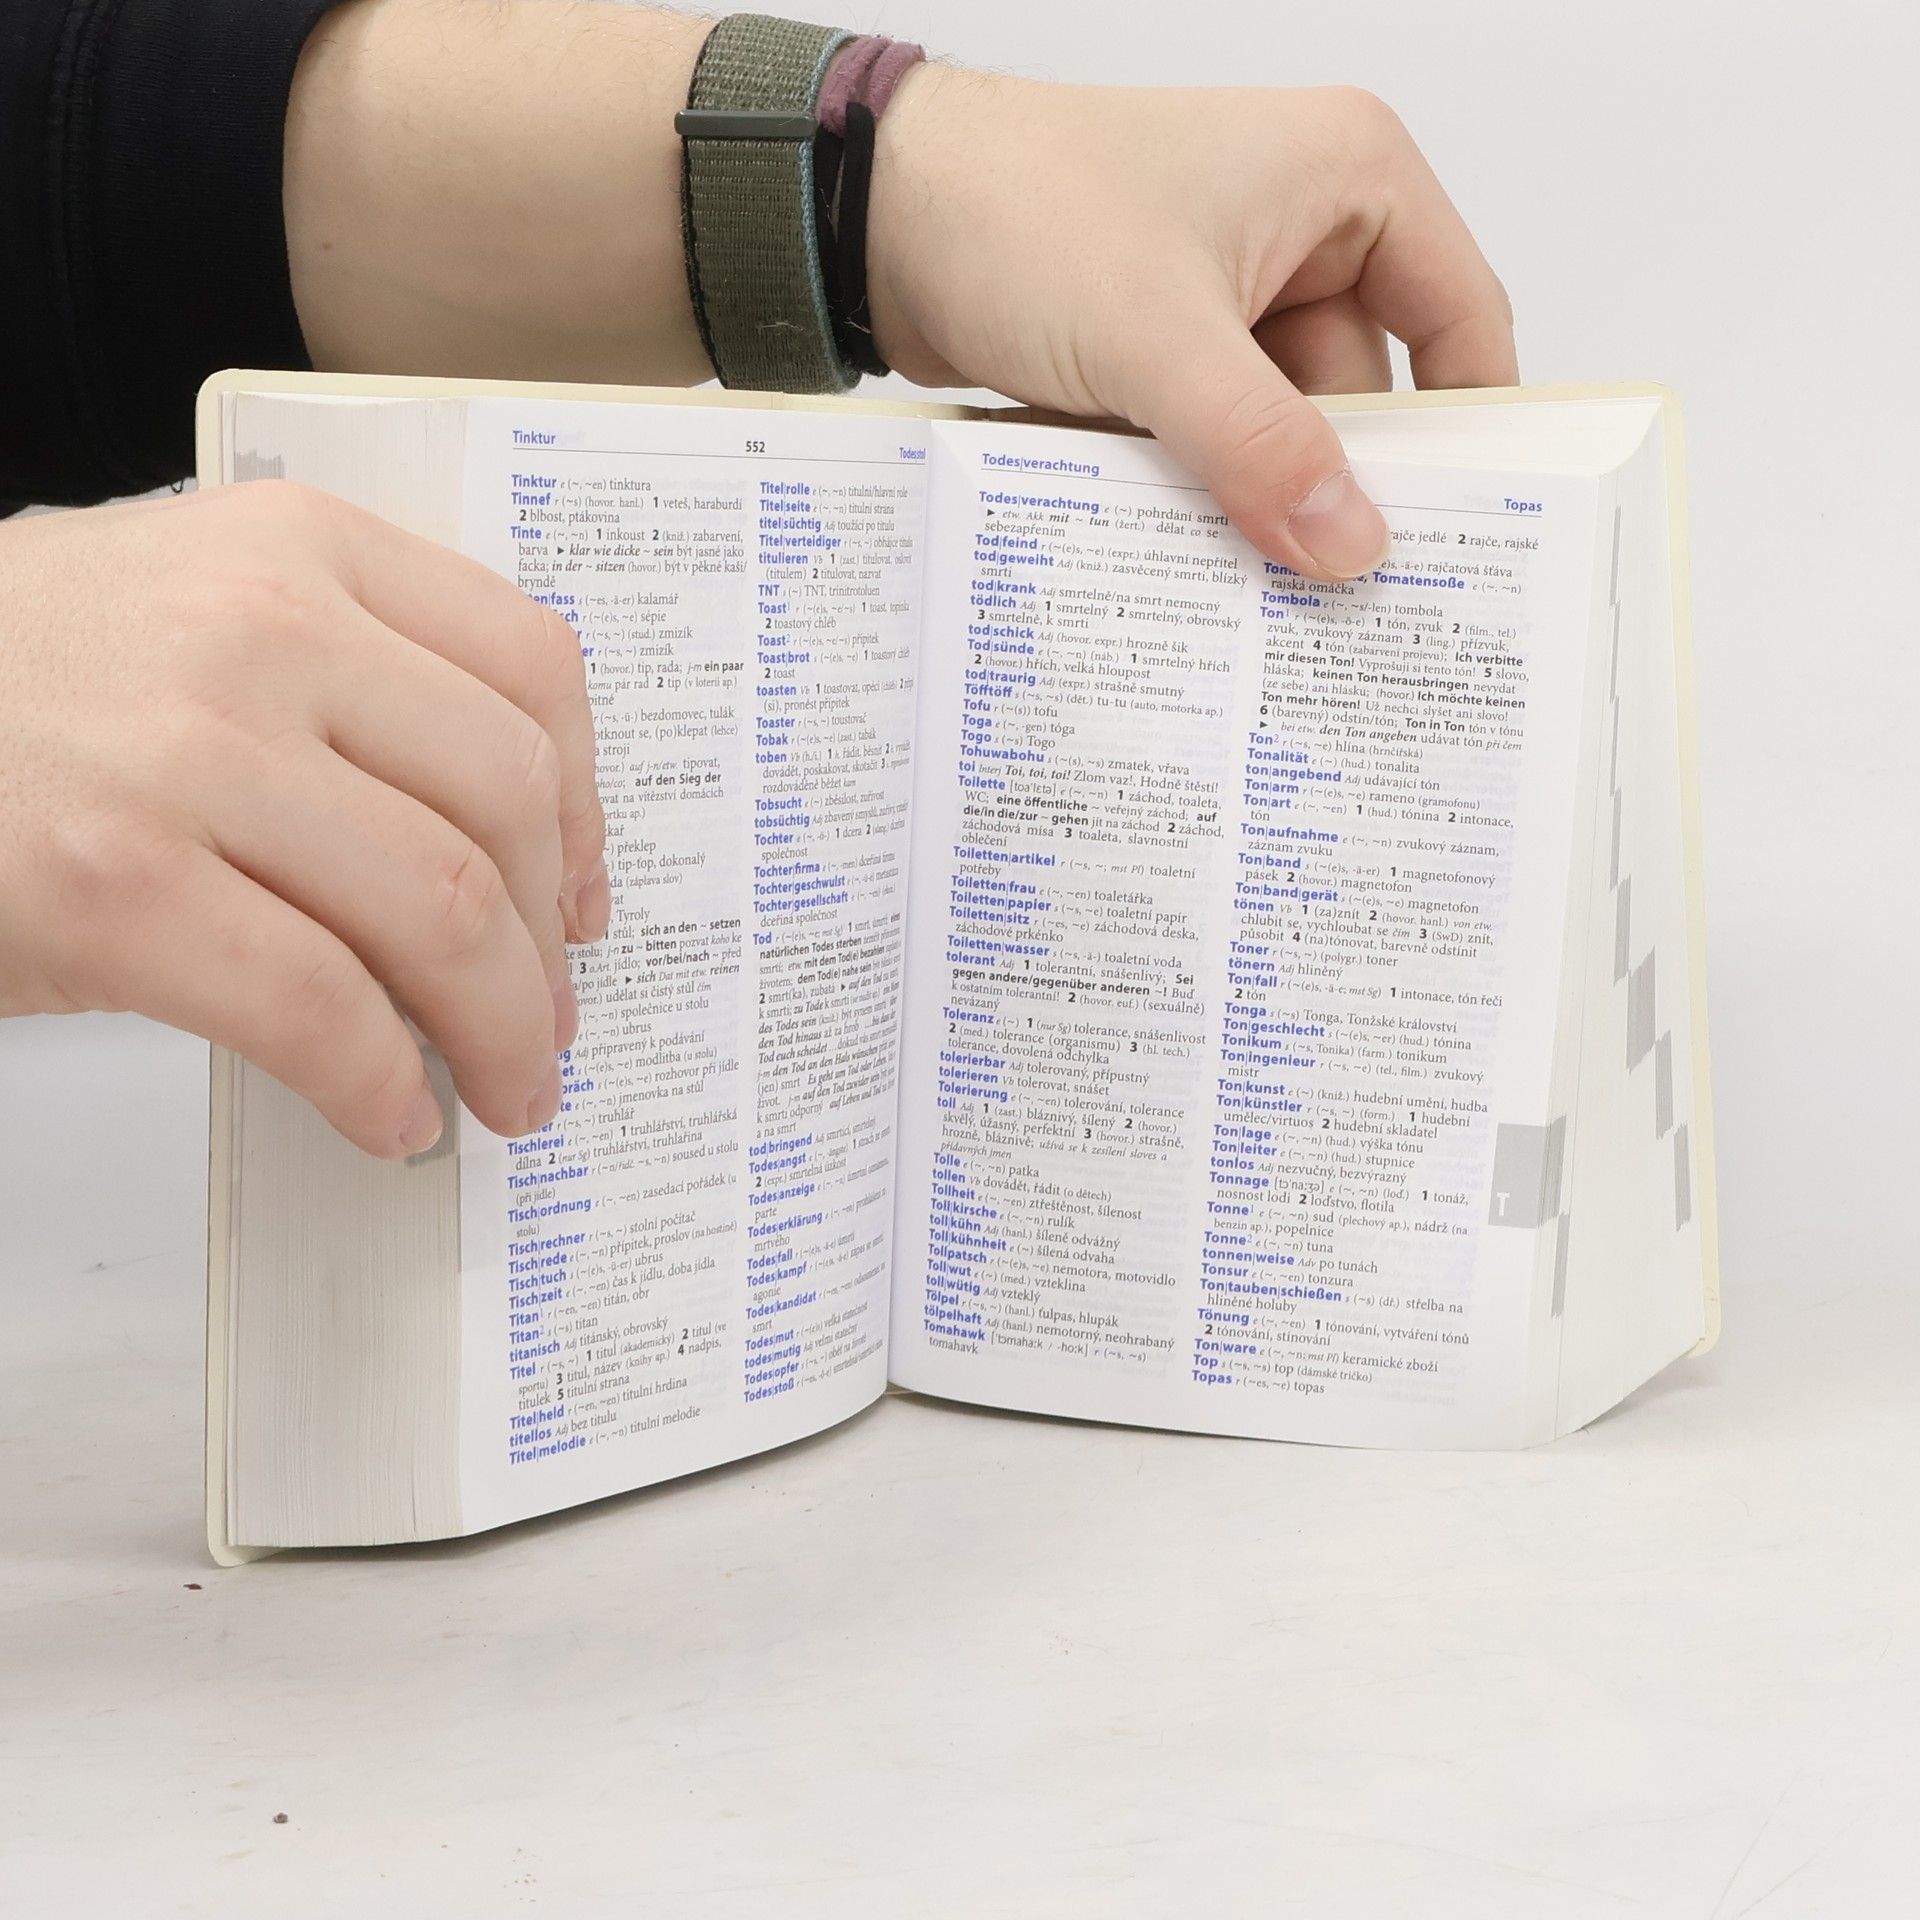 Tinktur
552
Tinktur e (~, ~en) tinktura
Tinnef r (~s) (hovor. hanl.) 1 veteš, haraburdí
2 blbost, ptákovina
Tinte e (~, ~n) 1 inkoust 2 (kniž.) zabarvení,
barva ► klar wie dicke ~ sein být jasné jako
facka; in der ~ sitzen (hovor.) být v pěkné kaši/
bryndě
s (~es, -ä-er) kalamář
r (~(e)s, ~e) sépie
r (~s, ~) (stud.) zmizík
r (~s, ~) zmizík
1 (hovor.) tip, rada; j-m ein paar
komu pár rad 2 tip (v loterii ap.)
r (~s, -ü-) bezdomovec, tulák
otknout se, (po)klepat (lehce)
stroji
auf j-n/etw. tipovat,
auf den Sieg der
na vítězství domácích
překlep
tip-top, dokonalý
(záplava slov)
Tyroly
stůl; sich an den ~ setzen
stolu; j-n zu ~ bitten pozvat koho ke
3 o.Art. jídlo; vor/bei/nach ~ před
jídle ► sich Dat mit etw. reinen
udělat si čistý stůl čím
společnice u stolu
ubrus
Adj připravený k podávání
s (~(e)s, ~e) modlitba (u stolu)
s (~(e)s, ~e) rozhovor při jídle
e (~, ~n) jmenovka na stůl
r (~s, ~) truhlář
Tischlerei e (~, ~en) 1 truhlářství, truhlářská
dílna 2 (nur Sg) truhlářství, truhlařina
Tisch|nachbar r (~n/řidč. ~s, ~n) soused u stolu
(při jídle)
Tisch|ordnung e (~, ~en) zasedací pořádek (u
stolu)
Tisch|rechner r (~s, ~) stolní počítač
Tisch|rede e (~, ~n) přípitek, proslov (na hostině)
Tisch|tuch s (~(e)s, -ü-er) ubrus
Tisch|zeit e (~, ~en) čas k jídlu, doba jídla
Titan¹ r (~en, ~en) titán, obr
Titan² s (~s) titan
titanisch Adj titánský, obrovský
Titel r (~s, ~) 1 titul (akademický) 2 titul (ve
sportu) 3 titul, název (knihy ap.) 4 nadpis,
titulek 5 titulní strana
Titel|held r (~en, ~en) titulní hrdina
titellos Adj bez titulu
Titel|melodie e (~, ~n) titulní melodie
Titel|rolle e (~, ~n) titulní/hlavní role
Titel|seite e (~, ~n) titulní strana
titel|süchtig Adj toužící po titulu
Titel|verteidiger r (~s, ~) obhájce titulu
titulieren Vb 1 (zast.) titulovat, oslovit
(titulem) 2 titulovat, nazvat
TNT s (~) TNT, trinitrotoluen
Toast¹ r (~(e)s, ~e/~s) 1 toast, topinka
2 toastový chléb
Toast² r (~(e)s, ~e/~s) přípitek
Toast|brot s (~(e)s, ~e) 1 toastový chléb
2 toast
toasten Vb 1 toastovat, opéci
(si), pronést přípitek
Toaster r (~s, ~) toustovač
Tobak r (~(e)s, ~e) (zast.) tabák
toben Vb (h./i.) 1 h. řádit, běsnit
dovádět, poskakovat, skotačit 3
rozdováděně běžet kam
Tobsucht e (~) zběsilost, zuřivost
tobsüchtig Adj zbavený smyslů, zuřivý
Tochter e (~, -ö-) 1 dcera 2 (slang.) dceřiná
společnost
Tochter|firma e (~, -men) dceřiná firma
Tochter|geschwulst e (~, -ü-e) metastáza
Tochter|gesellschaft e (~, ~en) (ekon.)
dceřiná společnost
Tod r (~(e)s, ~e; mst Sg) 1 smrt, úmrtí;
natürlichen Todes sterben
smrtí; etw. mit dem Tod(e) bezahlen
životem; dem Tod(e) nahe sein
2 smrt(ka), zubatá
k smrti; zu Tode k smrti
des Todes sein (kniž.) být synem smrti
den Tod hinaus až za hrob
Tod euch scheidet
j-m den Tod an den Hals wünschen
(jen) smrt Es geht um Tod oder Leben.
život. j-m auf den Tod zuwider sein
k smrti odporný auf Leben und Tod
a na smrt
tod|bringend Adj smrtící, smrtelný
Todes|angst e (~, -ängste) 1 strach ze smrti
2 (expr.) smrtelná úzkost
Todes|anzeige e (~, ~n) úmrtní oznámení,
parte
Todes|erklärung e (~, ~en) prohlášení za
mrtvého
Todes|fall r (~(e)s, -ä-e) úmrtí
Todes|kampf r (~(e)s, -ä-e) zápas se smrtí,
agonie
Todes|kandidat r (~en, ~en) odsouzenec na
smrt
Todes|mut r (~(e)s) velká statečnost
todes|mutig Adj velmi statečný
Todes|opfer s (~s, ~) oběť na životě
Todes|stoß r (~es, -ö-e)
Todes|verachtung
Topas
Todes|verachtung e (~) pohrdání smrtí
► etw. Akk mit ~ tun (žert.) dělat co se
sebezapřením
Tod|feind r (~(e)s, ~e) (expr.) úhlavní nepřítel
tod|geweiht Adj (kniž.) zasvěcený smrti, blízký
smrti
tod|krank Adj smrtelně/na smrt nemocný
tödlich Adj 1 smrtelný 2 smrtelný, obrovský
3 smrtelně, k smrti
tod|schick Adj (hovor. expr.) hrozně šik
Tod|sünde e (~, ~n) (náb.) 1 smrtelný hřích
2 (hovor.) hřích, velká hloupost
tod|traurig Adj (expr.) strašně smutný
Töfftöff s (~s, ~s) (dět.) tu-tu (auto, motorka ap.)
Tofu r (~(s)) tofu
Toga e (~, -gen) tóga
Togo s (~s) Togo
Tohuwabohu s (~(s), ~s) zmatek, vřava
toi Interj Toi, toi, toi! Zlom vaz!, Hodně štěstí!
Toilette [toa'lɛtə] e (~, ~n) 1 záchod, toaleta,
WC; eine öffentliche ~ veřejný záchod; auf
die/in die/zur ~ gehen jít na záchod 2 záchod,
záchodová mísa 3 toaleta, slavnostní
oblečení
Toiletten|artikel r (~s, ~; mst Pl) toaletní
potřeby
Toiletten|frau e (~, ~en) toaletářka
Toiletten|papier s (~s, ~e) toaletní papír
Toiletten|sitz r (~es, ~e) záchodová deska,
záchodové prkénko
Toiletten|wasser s (~s, -ä-) toaletní voda
tolerant Adj 1 tolerantní, snášenlivý; Sei
gegen andere/gegenüber anderen ~! Buď
k ostatním tolerantní! 2 (hovor. euf.) (sexuálně)
nevázaný
Toleranz e (~) 1 (nur Sg) tolerance, snášenlivost
2 (med.) tolerance (organismu) 3 (hl. tech.)
tolerance, dovolená odchylka
tolerierbar Adj tolerovaný, přípustný
tolerieren Vb tolerovat, snášet
Tolerierung e (~, ~en) tolerování, tolerance
toll Adj 1 (zast.) bláznivý, šílený 2 (hovor.)
skvělý, úžasný, perfektní 3 (hovor.) strašně,
hrozně, bláznivě; užívá se k zesílení sloves a
přídavných jmen
Tolle e (~, ~n) patka
tollen Vb dovádět, řádit (o dětech)
Tollheit e (~, ~en) ztřeštěnost, šílenost
Toll|kirsche e (~, ~n) rulík
toll|kühn Adj (hanl.) šíleně odvážný
Toll|kühnheit e (~) šílená odvaha
Tollpatsch r (~(e)s, ~e) nemotora, motovidlo
Toll|wut e (~) (med.) vzteklina
toll|wütig Adj vzteklý
Tölpel r (~s, ~) (hanl.) ťulpas, hlupák
tölpelhaft Adj (hanl.) nemotorný, neohrabaný
Tomahawk ['tɔmaha:k / -ho:k] r (~s, ~s)
tomahavk
rajče jedlé 2 rajče, rajské
-ä-e) rajčatová šťáva
Tomatensoße e (~, ~n)
rajská omáčka
Tombola e (~, ~s/-len) tombola
Ton¹ r (~(e)s, -ö-e) 1 tón, zvuk 2 (film., tel.)
zvuk, zvukový záznam 3 (ling.) přízvuk,
akcent 4 tón (zabarvení projevu); Ich verbitte
mir diesen Ton! Vyprošuji si tento tón! 5 slovo,
hláska; keinen Ton herausbringen nevydat
(ze sebe) ani hlásku; (hovor.) Ich möchte keinen
Ton mehr hören! Už nechci slyšet ani slovo!
6 (barevný) odstín/tón; Ton in Ton tón v tónu
► bei etw. den Ton angeben udávat tón při čem
Ton² r (~s, ~e) hlína (hrnčířská)
Tonalität e (~) (hud.) tonalita
ton|angebend Adj udávající tón
Ton|arm r (~(e)s, ~e) rameno (gramofonu)
Ton|art e (~, ~en) 1 (hud.) tónina 2 intonace,
tón
Ton|aufnahme e (~, ~n) zvukový záznam,
záznam zvuku
Ton|band s (~(e)s, -ä-er) 1 magnetofonový
pásek 2 (hovor.) magnetofon
Ton|band|gerät s (~(e)s, ~e) magnetofon
tönen Vb 1 (za)znít 2 (hovor. hanl.) von etw.
chlubit se, vychloubat se čím 3 (SwD) znít,
působit 4 (na)tónovat, barevně odstínit
Toner r (~s, ~) (polygr.) toner
tönern Adj hliněný
Ton|fall r (~(e)s, -ä-e; mst Sg) 1 intonace, tón řeči
2 tón
Tonga s (~s) Tonga, Tonžské království
Ton|geschlecht s (~(e)s, ~er) (hud.) tónina
Tonikum s (~s, Tonika) (farm.) tonikum
Ton|ingenieur r (~s, ~e) (tel., film.) zvukový
mistr
Ton|kunst e (~) (kniž.) hudební umění, hudba
Ton|künstler r (~s, ~) (form.) 1 hudební
umělec/virtuos 2 hudební skladatel
Ton|lage e (~, ~n) (hud.) výška tónu
Ton|leiter e (~, ~n) (hud.) stupnice
tonlos Adj nezvučný, bezvýrazný
Tonnage [tɔ'na:ʒə] e (~, ~n) (loď.) 1 tonáž,
nosnost lodi 2 loďstvo, flotila
Tonne¹ e (~, ~n) sud (plechový ap.), nádrž (na
benzin ap.), popelnice
Tonne² e (~, ~n) tuna
tonnen|weise Adv po tunách
Tonsur e (~, ~en) tonzura
Ton|tauben|schießen s (~s) (dř.) střelba na
hliněné holuby
Tönung e (~, ~en) 1 tónování, vytváření tónů
2 tónování, stínování
Ton|ware e (~, ~n; mst Pl) keramické zboží
Top s (~s, ~s) top (dámské tričko)
Topas r (~es, ~e) topas
T